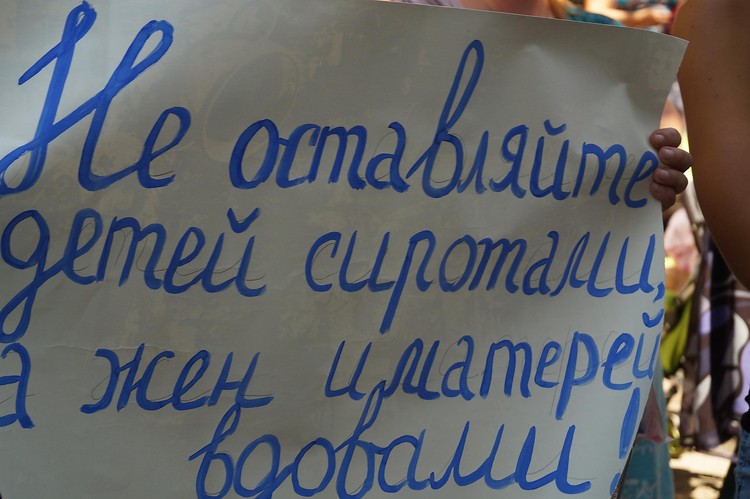 Не оставляйте
детей сиротами,
а жен и матерей
вдовами!